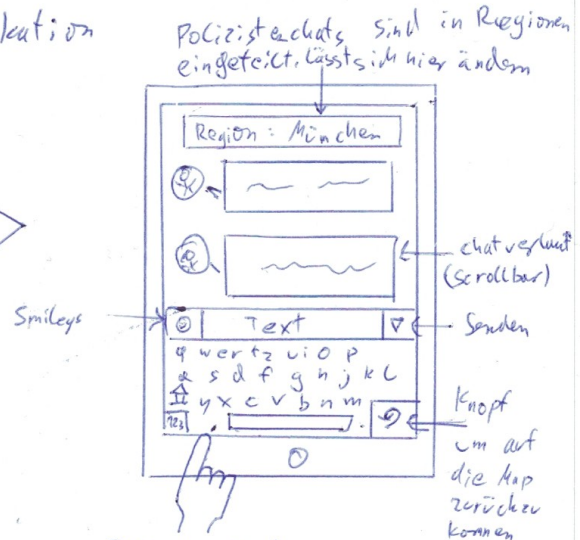 kation
Polizistenchats sind in Regionen
eingeteilt, lässt sich hier ändern
Region: München
chatverlauf
(scrollbar)
Smileys
Text
Senden
q w e r t z u i o p
a s d f g h j k l
y x c v b n m
123
Knopf
um auf
die Map
zurückzu
kommen